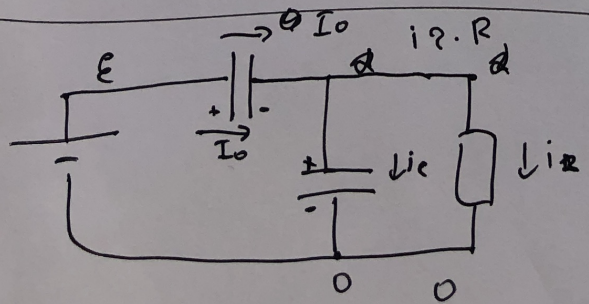 I₀
i₂·R
ε
+ -
I₀
+
-
i_c
i_R
0
0